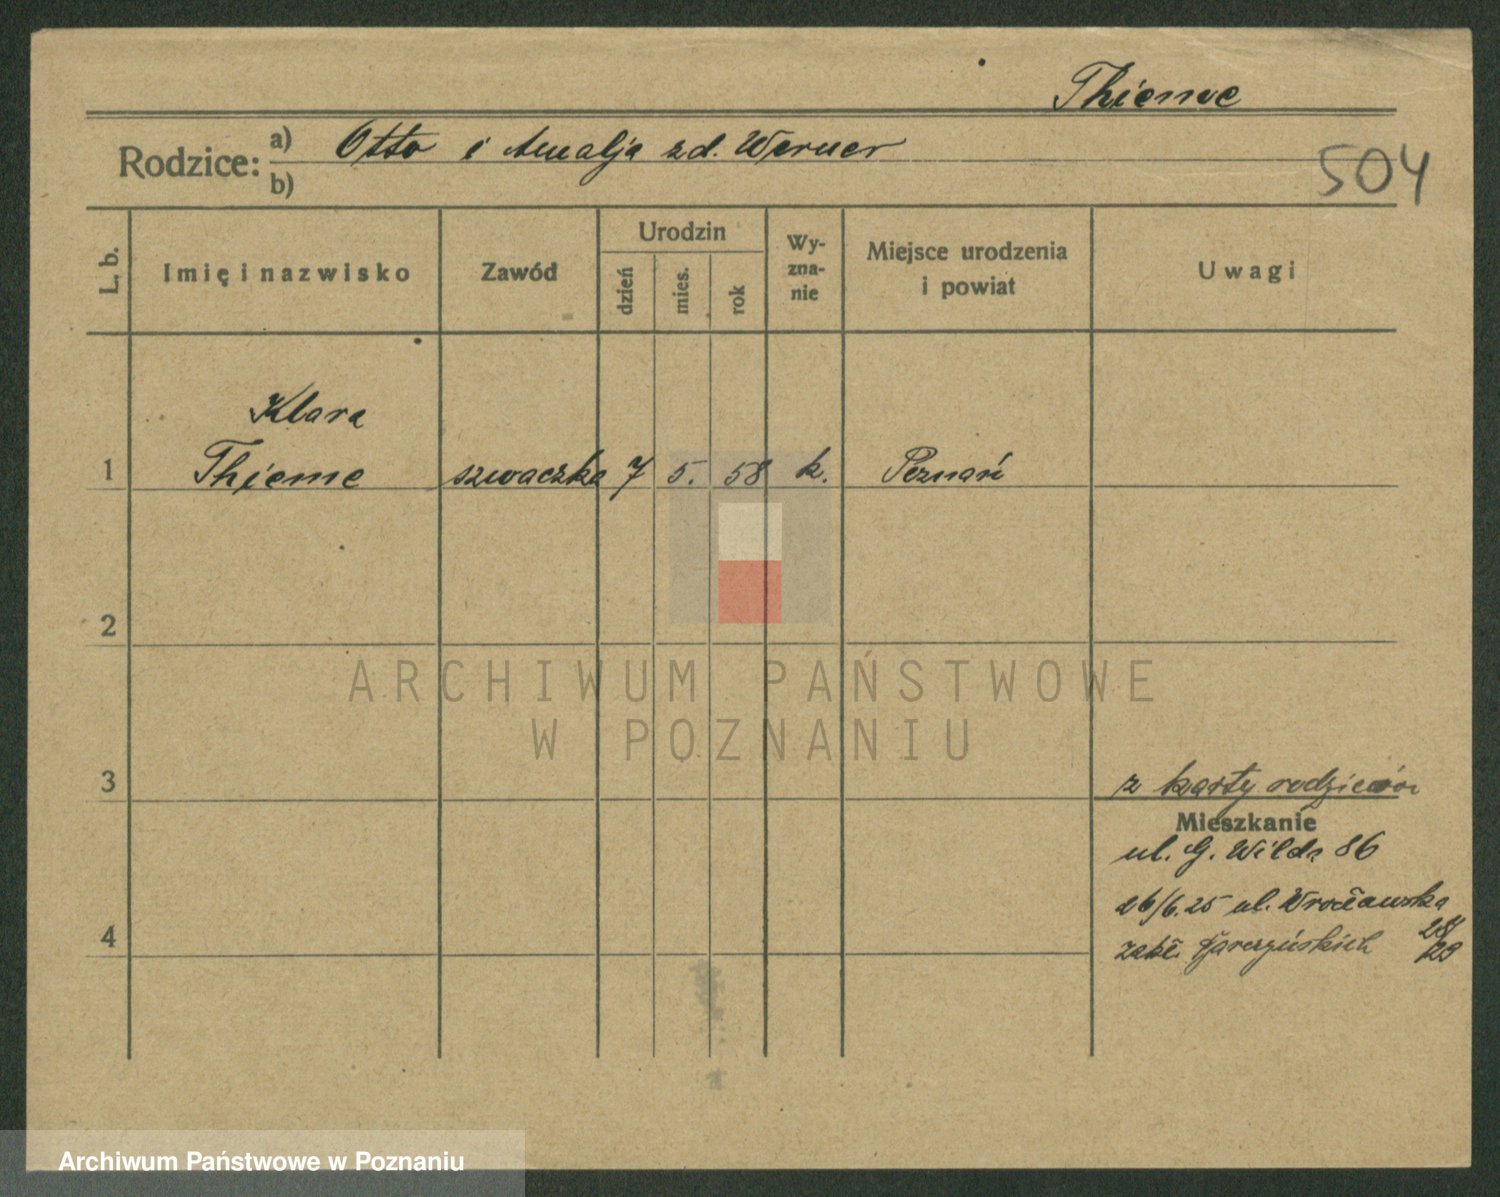 Thieme
Rodzice: a) Otto i Amalja zd. Werner
b)
504
L. b.
Imię i nazwisko
Zawód
Urodzin
dzień
mies.
rok
Wy-
zna-
nie
Miejsce urodzenia
i powiat
Uwagi
Klara
1 Thieme szwaczka 7 5. 58 k. Poznań
2
ARCHIWUM PAŃSTWOWE
W POZNANIU
3
z karty rodziców
Mieszkanie
ul. G. Wilda 86
26/6.25 ul. Wrocławska
28/29
4
zakł. Garczyńskich
Archiwum Państwowe w Poznaniu